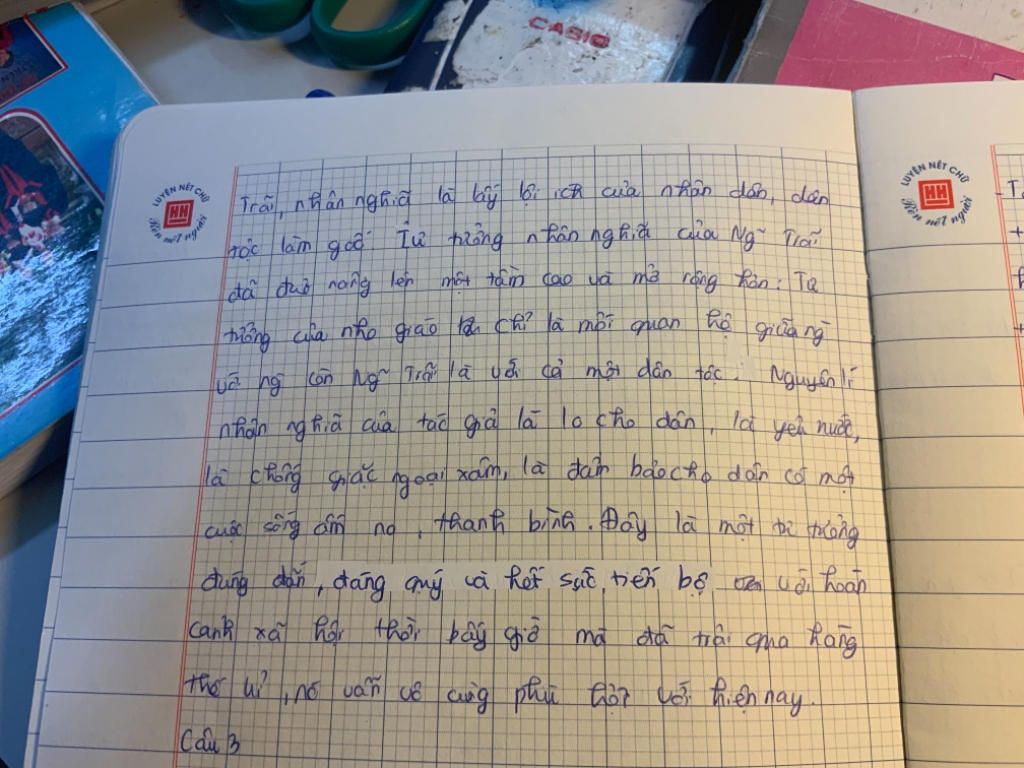 CASIO
LUYỆN NẾT CHỮ
HH
Rèn nết người
Trãi, nhân nghĩa là lấy lợi ích của nhân dân, dân
tộc làm gốc. Tư tưởng nhân nghĩa của Ng~ Trãi
đã đưa nâng lên một tầm cao và mở rộng hơn: Tư
tưởng của nho giáo chỉ là mối quan hệ giữa ng
và ng còn Ng~ Trãi là với cả một dân tộc. Nguyên lí
nhân nghĩa của tác giả là lo cho dân, là yêu nước,
là chống giặc ngoại xâm, là đảm bảo cho dân có một
cuộc sống ấm no, thanh bình. Đây là một tư tưởng
đúng đắn, đáng quý và hết sức tiến bộ với hoàn
cảnh xã hội thời bấy giờ mà đã trải qua hàng
thế kỉ, nó vẫn vô cùng phù hợp với hiện nay.
Câu 3
LUYỆN NẾT CHỮ
HH
Rèn nết người